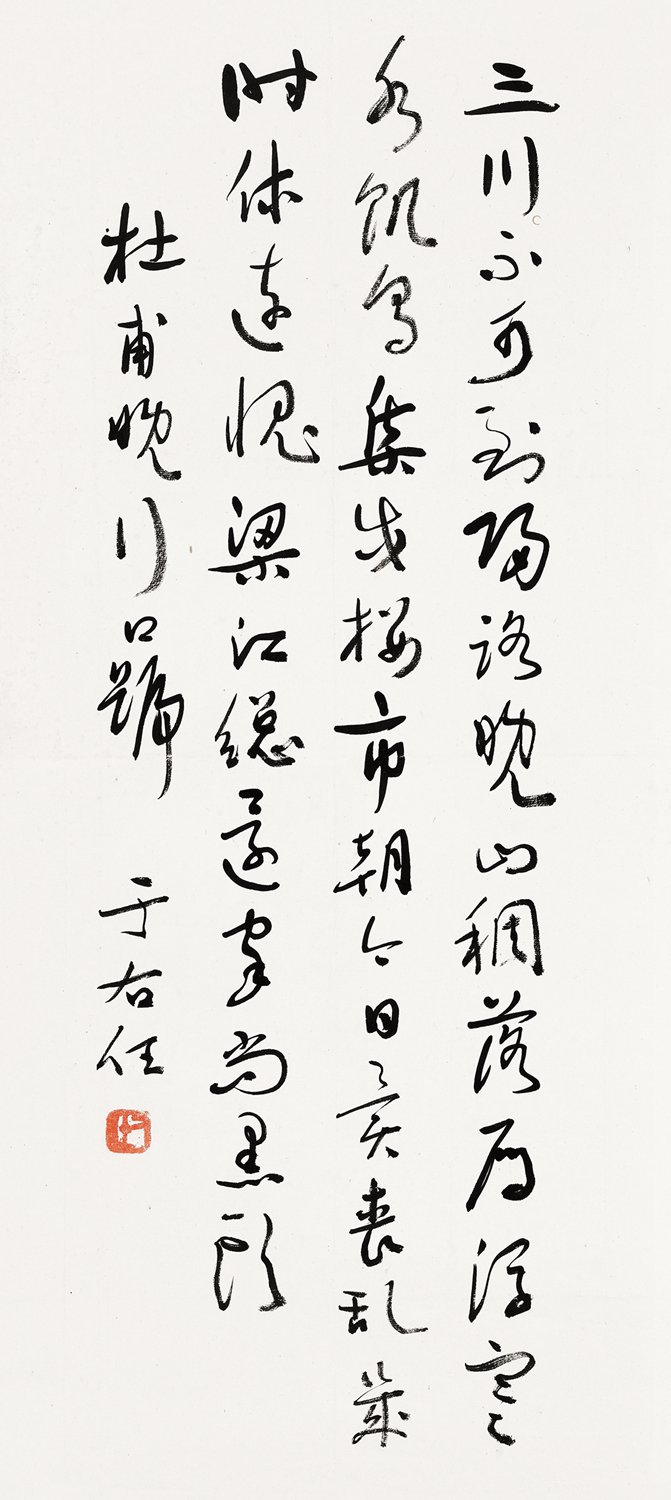 三川不可到歸路晚山稠落雁浮寒
水飢烏集戍樓市朝今日異喪乱幾
時休遠愧梁江總還家尚黑頭
杜甫晚行口號 于右任